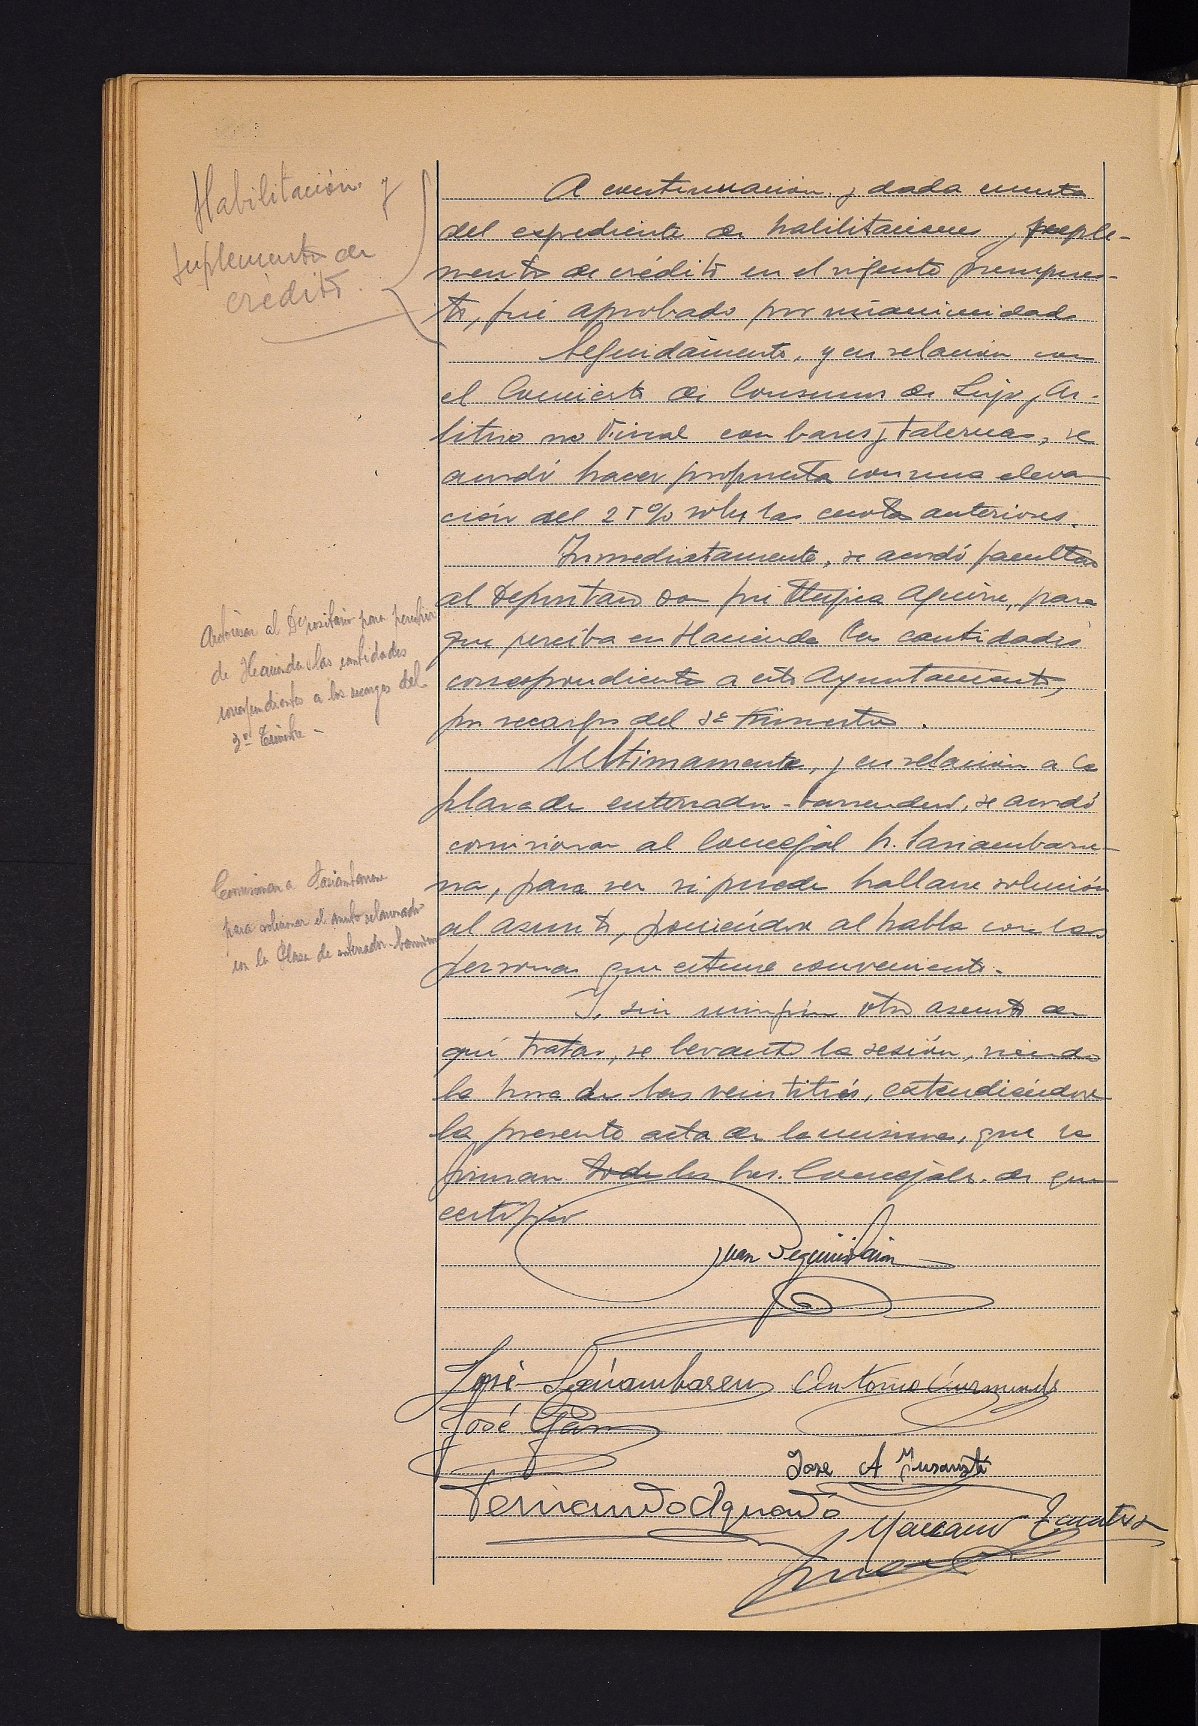 Habilitación y
suplemento de
crédito.
A continuación, y dada cuenta
del expediente de habilitaciones y suple-
mento de crédito en el vigente presupues-
to, fué aprobado por unanimidad
Seguidamente, y en relación con
el Concierto de Consumos de Lujo, Ar-
bitrio no Fiscal con bares y tabernas, se
acordó hacer propuesta con una eleva-
ción del 25% sobre las cuotas anteriores.
Inmediatamente, se acordó facultar
al Depositario don José Mugica Aguirre, para
que perciba en Hacienda las cantidades
correspondientes a este Ayuntamiento,
por recargos del 3er trimestre.
Autorizar al Depositario para percibir
de Hacienda las cantidades
correspondientes a los recargos del
3er Trimestre -
Ultimamente, y en relación a la
plaza de enterrador-barrendero, se acordó
comisionar al Concejal Sr.
para ver si puede hallarse solución
al asunto, poniéndose al habla con las
personas que estime conveniente.
Comisionar a
para solucionar el asunto relacionado
con la Plaza de enterrador-barrendero
Y, sin ningún otro asunto de
que tratar, se levantó la sesión, siendo
la hora de las veintitrés, extendiéndose
la presente acta de la misma, que la
firman todos los Sres. Concejales. de que
certifico
Juan
José Antonio
José
Jose A
Fernando Aguado